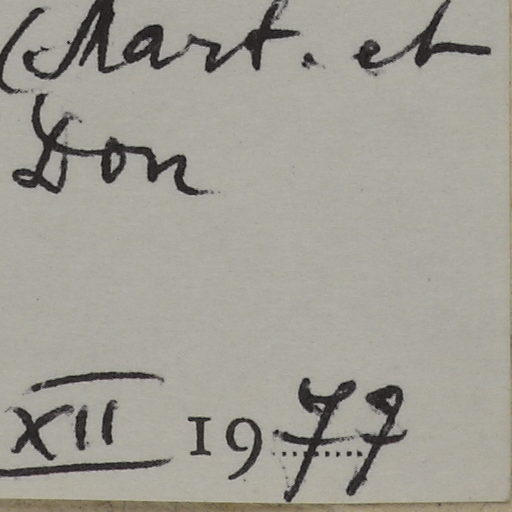 (Mart. et
Don
XII 1977